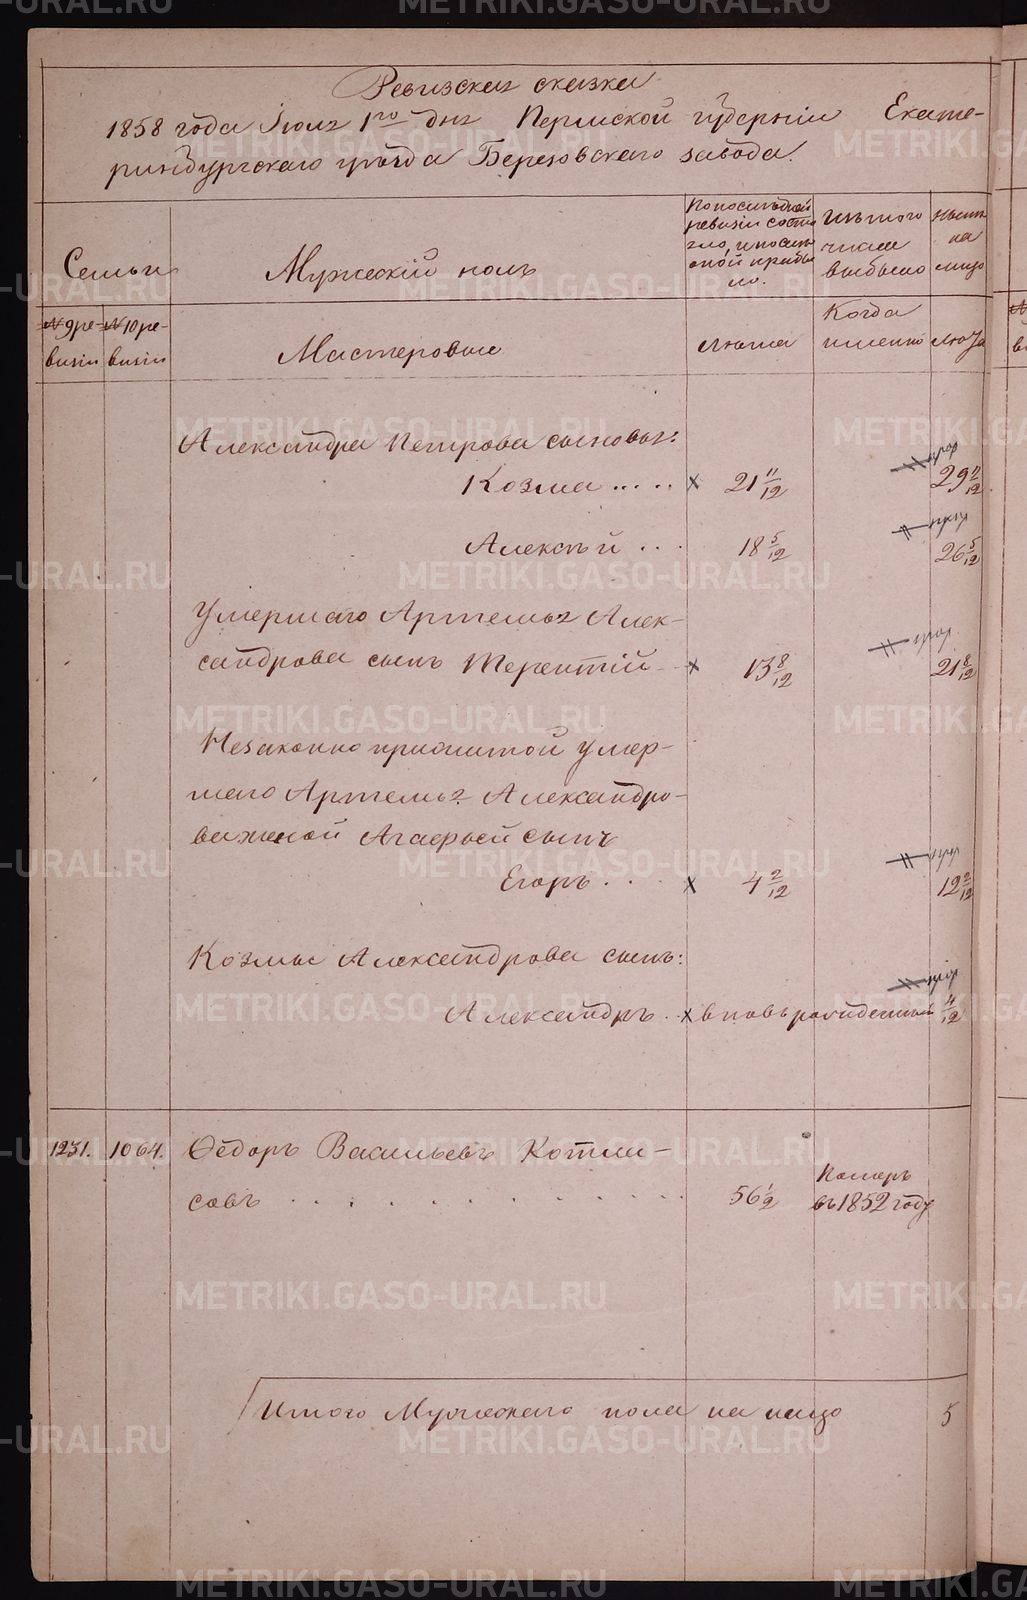 Ревизская сказка
1858 года Iюля 1го дня Пермской губернiи Екате-
ринбургскаго уѣзда Березовскаго завода.
Семьи
Мужескiй полъ
По послѣдней
ревизiи состо
яло, и послѣ
оной прибы
ло.
Изъ того
числа
выбыло
Нынѣ
на
лицо
№ 9 ре-
визiи
№ 10 ре-
визiи
Мастеровые
лѣта
Когда
именно
лѣта
Александра Петрова сыновья:
Козма ..... × 21 11/12 29 11/12
Алексѣй ... 18 5/12 26 5/12
Умершаго Артемья Алек-
сандрова сынъ Терентiй × 13 8/12 21 8/12
Незаконно прижитой умер-
шаго Артемья Александро-
ва женой Агафьей сынъ
Егоръ ... × 4 2/12 12 2/12
Козмы Александрова сынъ:
Александръ .. × вновь рожденный 4/12
1231. 1064. Ѳедоръ Васильевъ Котти-
совъ ............. 56 1/2
Померъ
въ 1852 году
Итого Мужескаго пола на лицо 5
METRIKI.GASO-URAL.RU